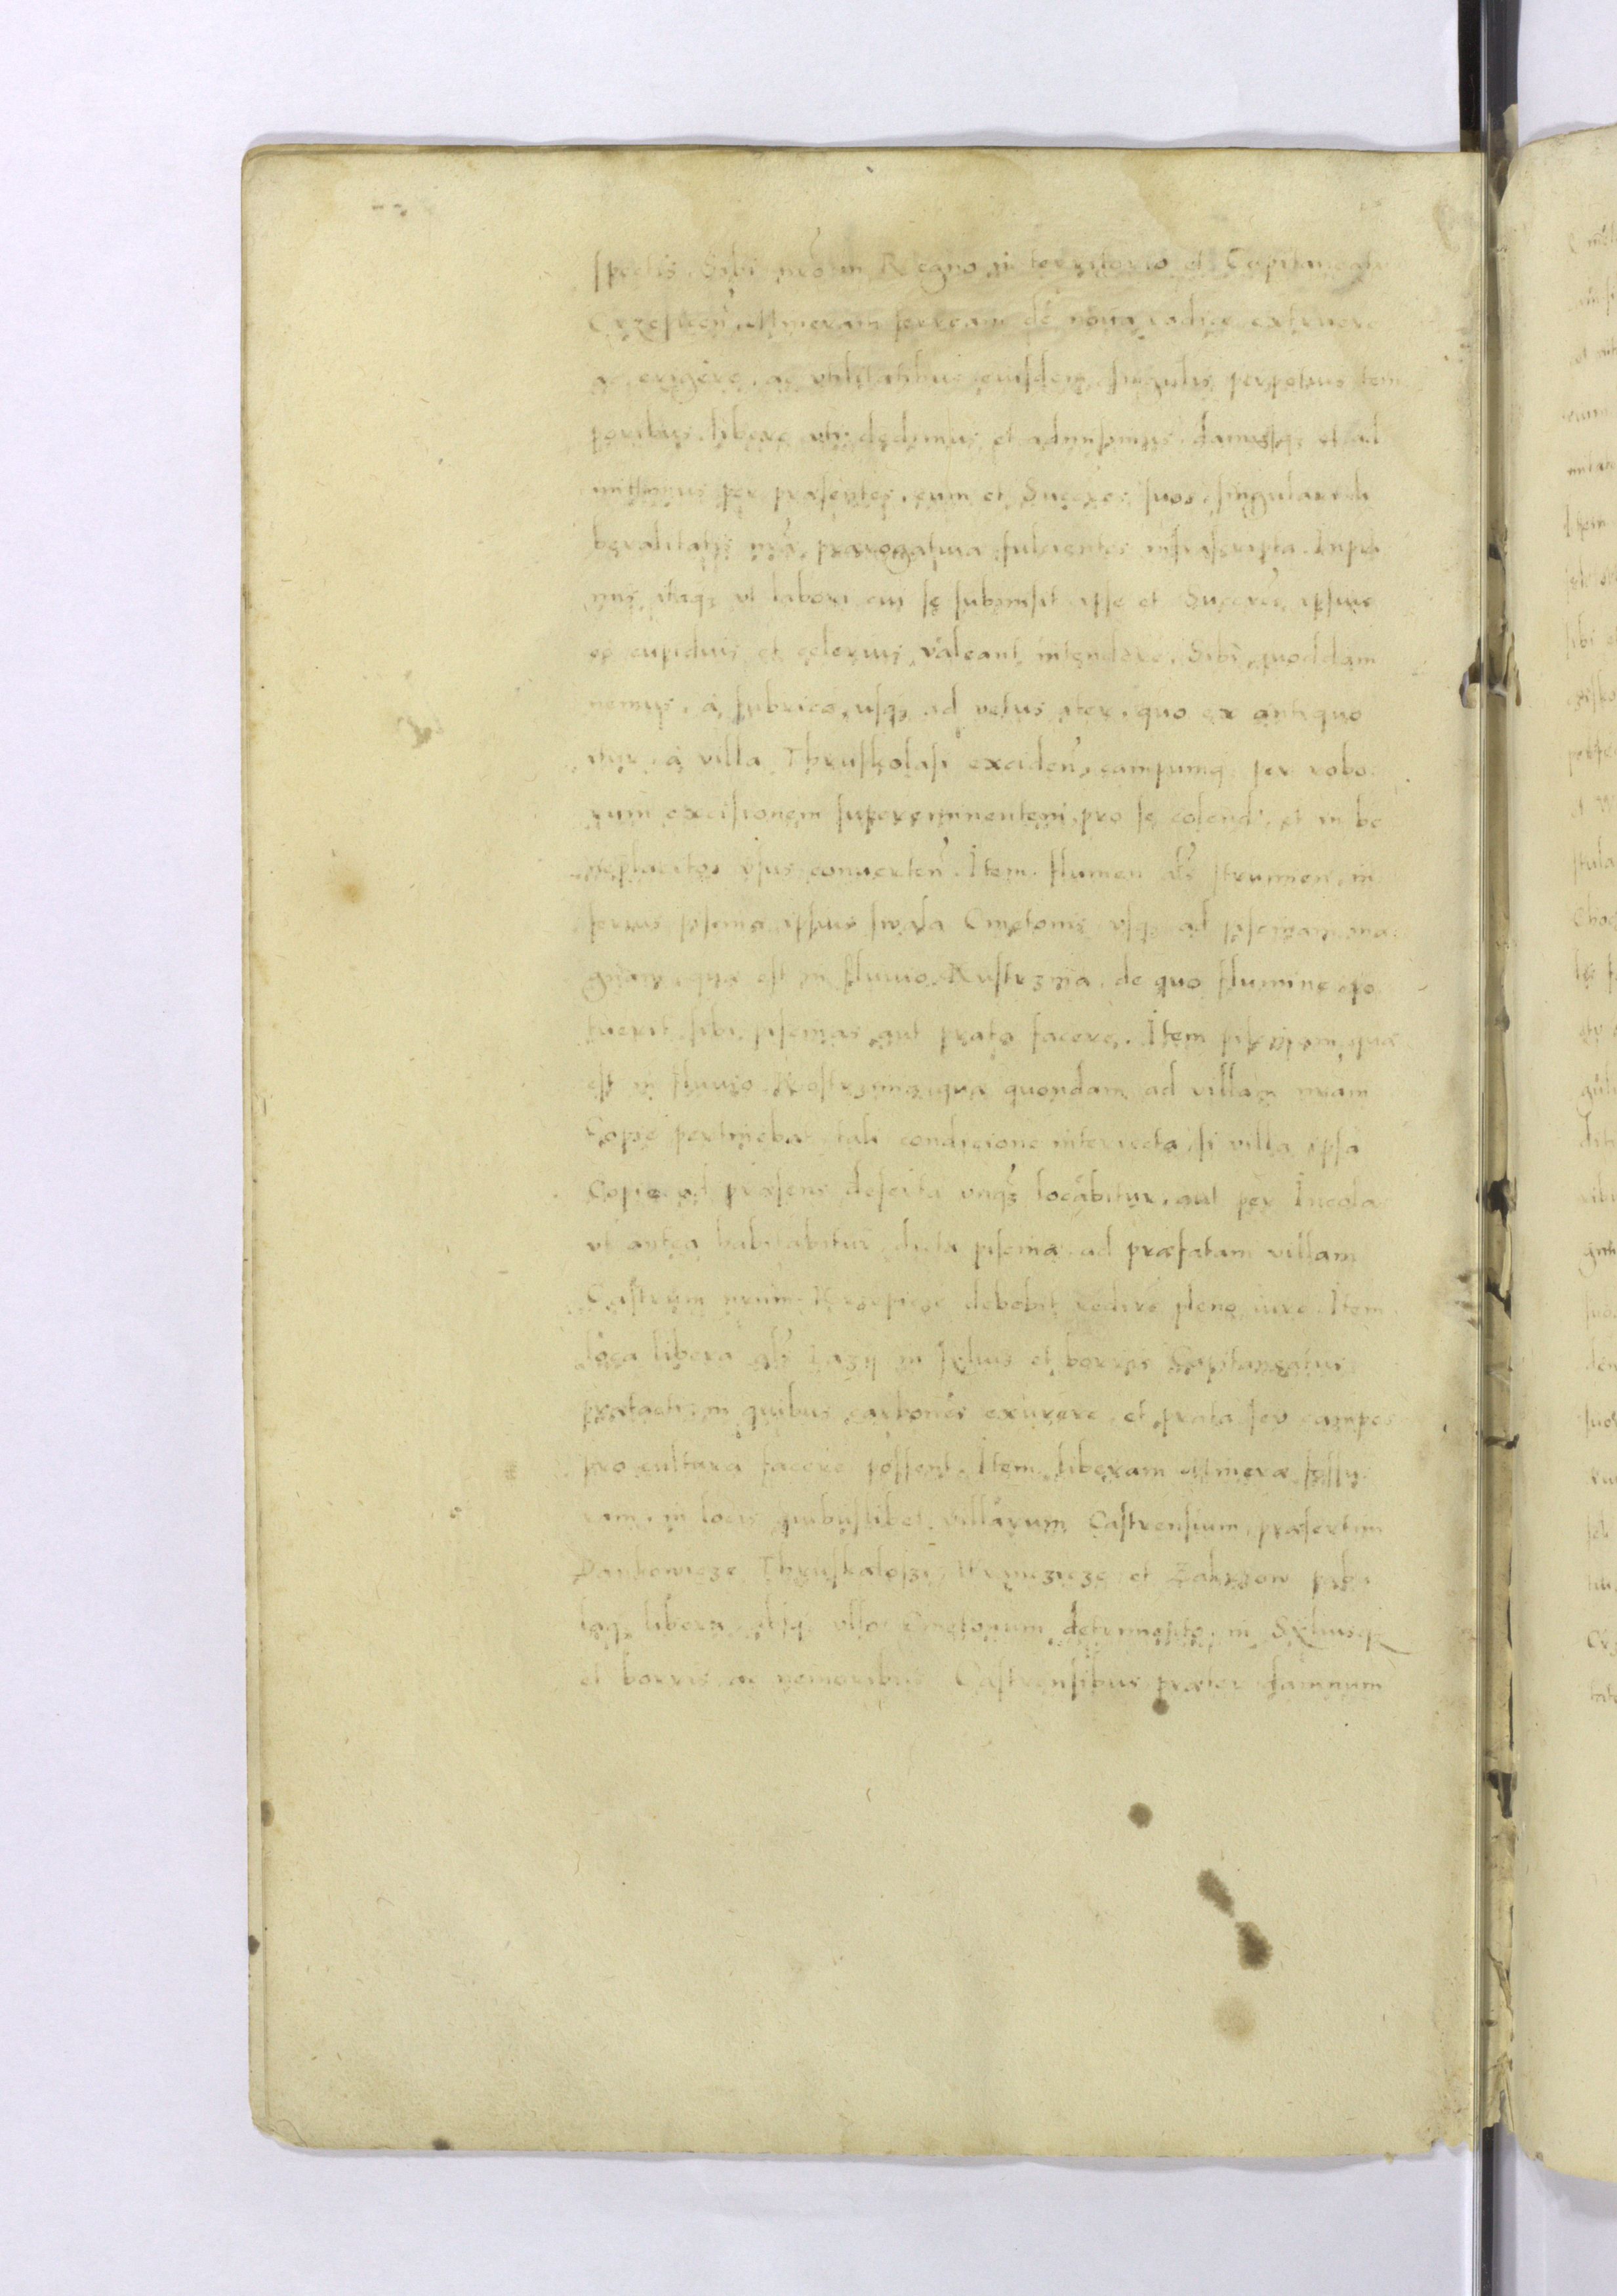 spectis. Sibi nr̃o in Regno in territorio et Capitaneatu
Crzesicen̄. Mineram ferream de noua radice extruere
ac erigere, ac vtilitatibus eiusdem singulis perpetuis tem
poribus libere vti dedimus et admisimus damusq; et ad
mittimus per præsentes, eum et Succes̄ suos, singulari li
beralitatis nr̄æ prærogatiua fulcientes infrascripta. Inpri
mis itaq; vt labori cui se submisit ipse et Succes̄ ipsius
eo cupidius et celerius valeant intendere. Sibi quoddam
nemus, à fabrica usq; ad vetus iter, quo ex antiquo
itur à villa Thruskolasi exciden̄, campumq; per robo
rum excisionem supereminentem, pro se colend̄, et in be
neplacitos vsus conuerten̄. Item flumen al̄s strumien, in
ferius piscina ipsius Cmetonis vsq; ad piscinam ma
gnam, quæ est in fluuio Kostrzina, de quo flumine po
tuerit sibi piscinas aut prata facere. Item piscinam quæ
est in fluuio Kostrzina, quæ quondam ad villam nr̄am
Copie pertinebat tali condicione interiecta, si villa ipsa
Copie ad præsens deserta vnq; locabitur, aut per Incola
vt antea habitabitur, dicta piscina ad præfatam villam
Castrum nr̄um Krzepicze debebit redire pleno iure. Item
loca libera al̄s Lazy in syluis et borris Capitaneatus
prætacti, in quibus carbones exurere, et prata seu campos
pro cultura facere possent. Item liberam mineræ fossu
ram, in locis quibuslibet villarum Castrensium, præsertim
Dankowicze Thruskalosi et Zakrzow
laq; libera, absq; vllo Cmetonum detrimento, in Syluisq;
et borris ac nemoribus Castrensibus præter damnum